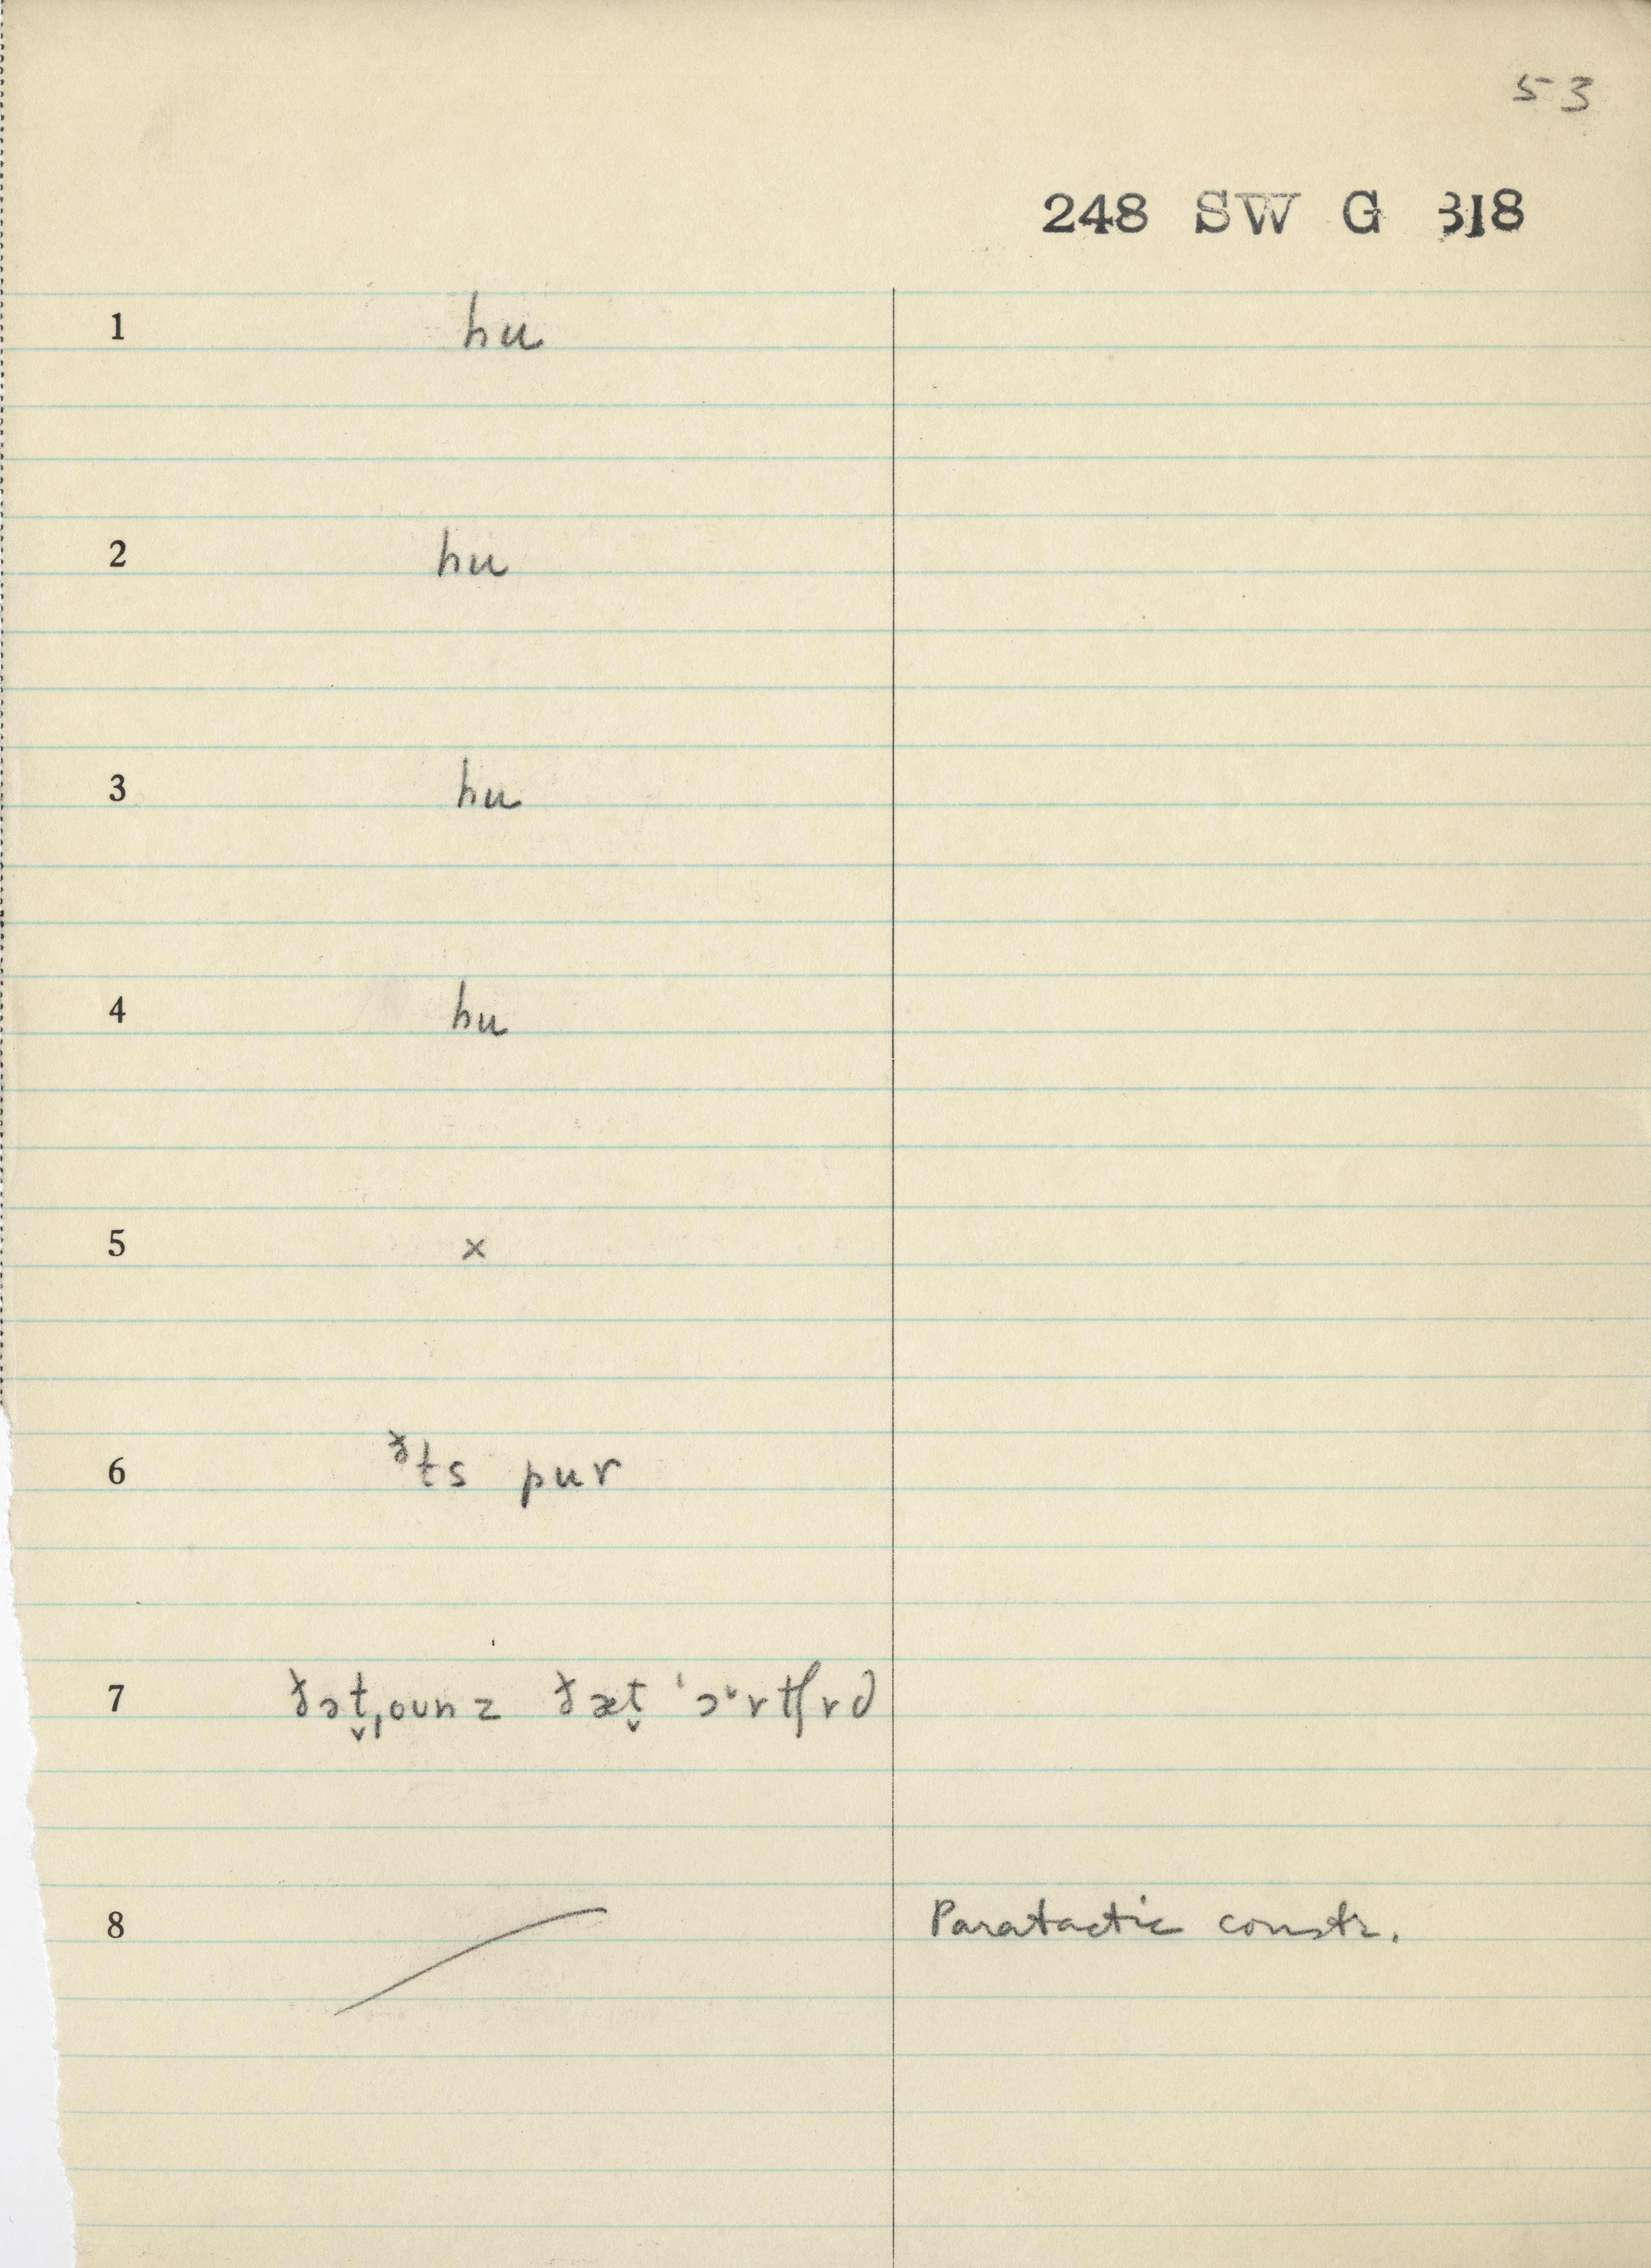 53
248 SW G 318
1 hu
2 hu
3 hu
4 hu
5 x
6 ᵟts pur
7 ðət̬ˌounz ðæt̬ ˈɔᵊrtʃrd
8 Paratactic constr.